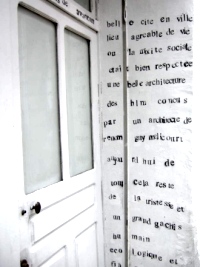 belle cite en ville
lieu agreable de vie
ou la mixite sociale
etait bien respectee
une belle architecture
des bim concus
par un architecte de
renom guy malicourt
aujourd hui de
tout cela reste
de la tristesse et
un grand gachis
humain
ecologique et